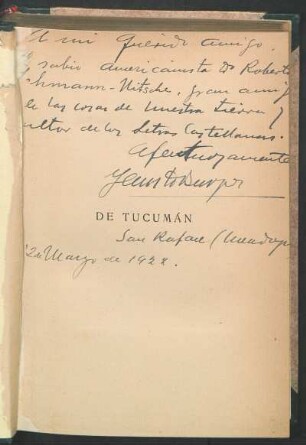 A mi querido amigo,
sabio americanista Dr Roberto
hmann-Nitsche, gran amig
de las cosas de nuestra tierra y
ultor de las Letras Castellanas.
Afectuosamente
DE TUCUMÁN
San Rafael (Mendoza
Marzo de 1928.